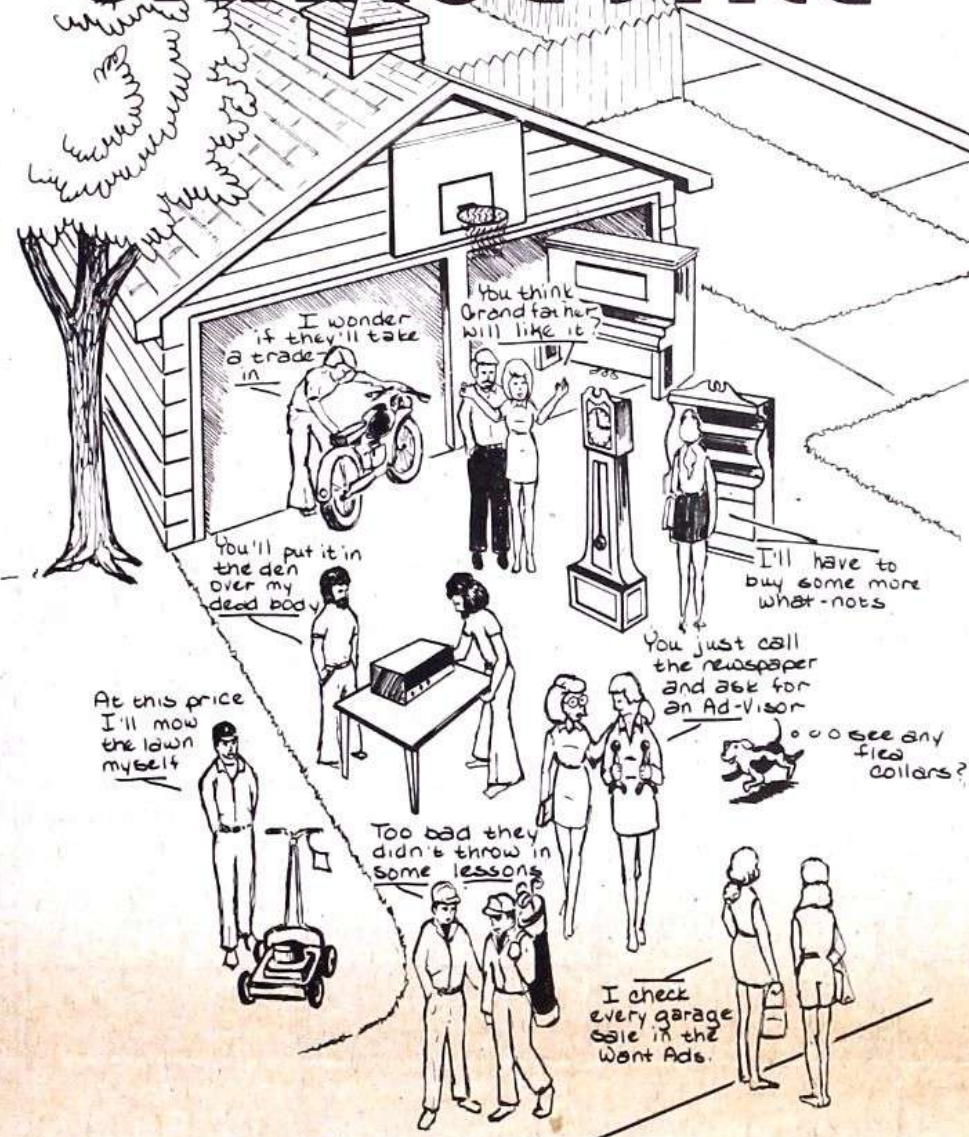 You think
Grandfather
will like it?
I wonder
if they'll take
a trade-
in
You'll put it in
the den
over my
dead body
I'll have to
buy some more
what-nots
You just call
the newspaper
and ask for
an Ad-Visor
At this price
I'll mow
the lawn
myself
see any
flea
collars?
Too bad they
didn't throw in
some lessons
I check
every garage
sale in the
Want Ads.